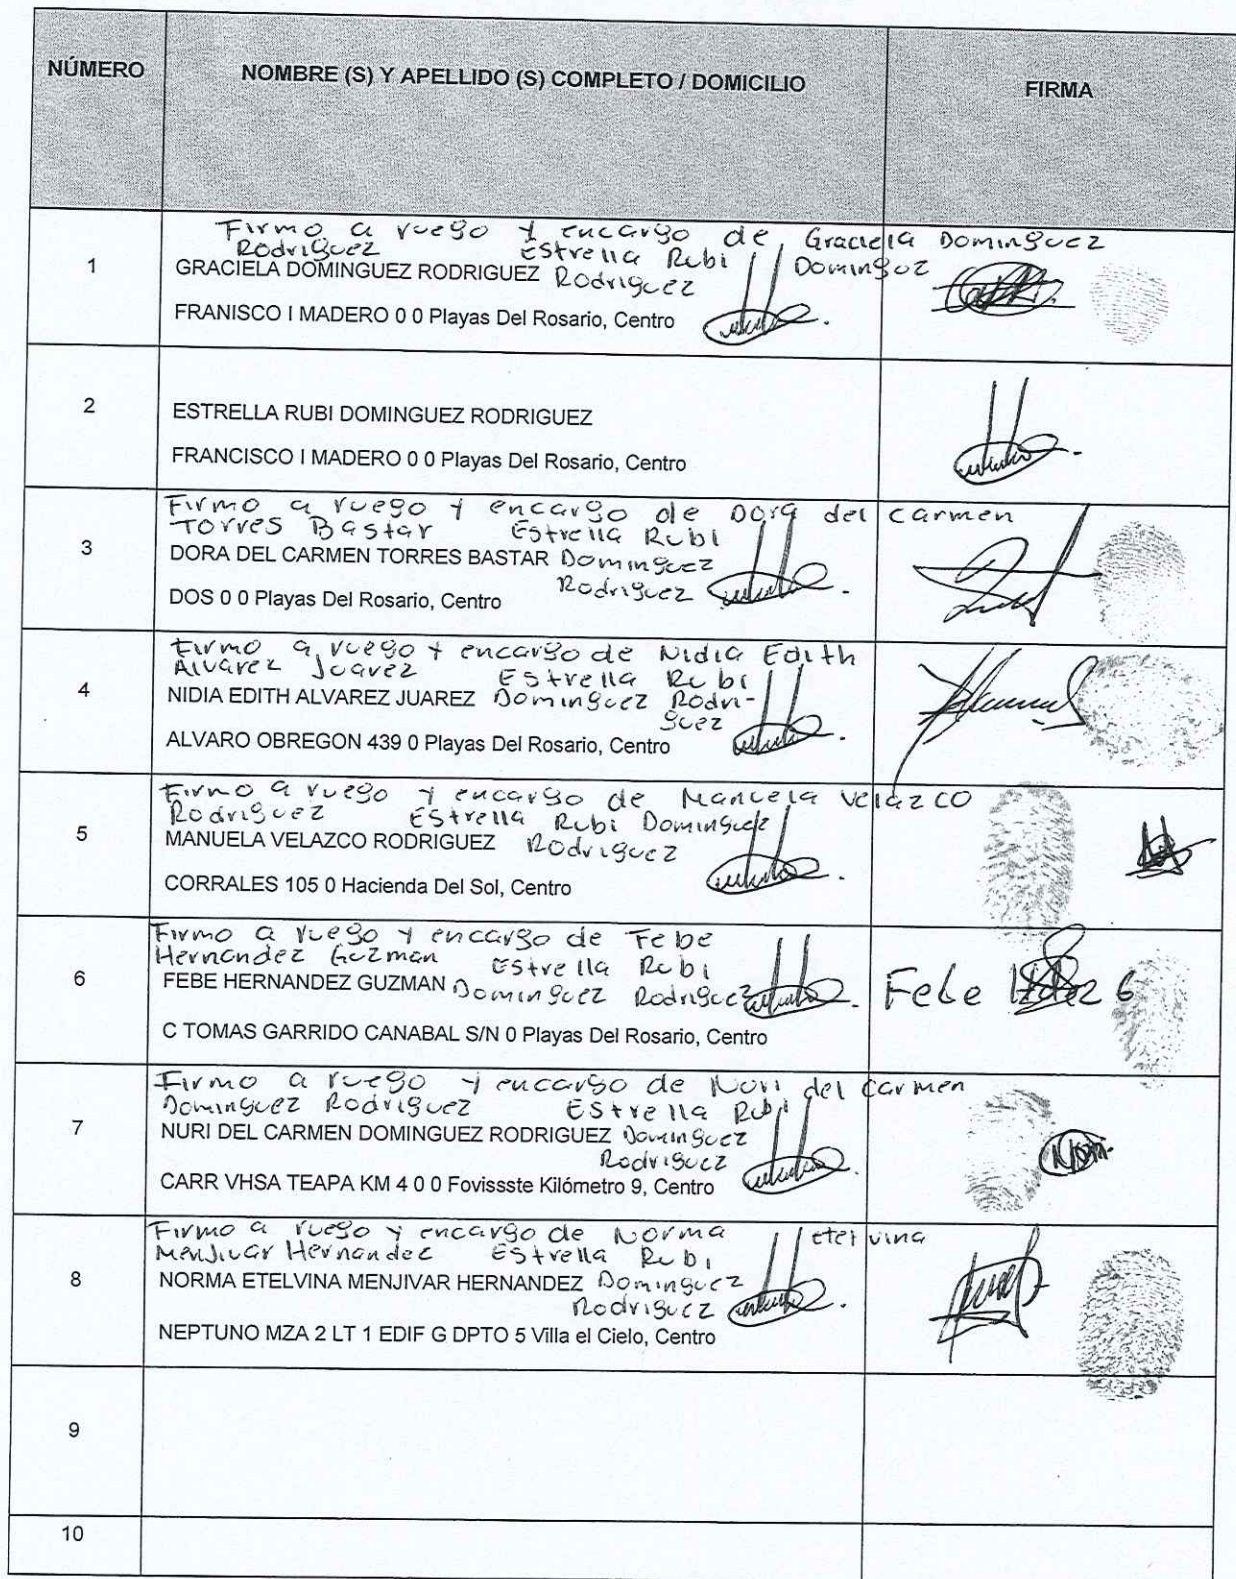 NÚMERO
NOMBRE (S) Y APELLIDO (S) COMPLETO / DOMICILIO
FIRMA
1
Firmo a ruego y encargo de Graciela Dominguez
Rodriguez Estrella Rubi Dominguez
GRACIELA DOMINGUEZ RODRIGUEZ Rodriguez
FRANISCO I MADERO 0 0 Playas Del Rosario, Centro
2
ESTRELLA RUBI DOMINGUEZ RODRIGUEZ
FRANCISCO I MADERO 0 0 Playas Del Rosario, Centro
3
Firmo a ruego y encargo de Dora del carmen
Torres Bastar Estrella Rubi
DORA DEL CARMEN TORRES BASTAR Dominguez
Rodriguez
DOS 0 0 Playas Del Rosario, Centro
4
Firmo a ruego y encargo de Nidia Edith
Alvarez Juarez Estrella Rubi
NIDIA EDITH ALVAREZ JUAREZ Dominguez Rodri-
guez
ALVARO OBREGON 439 0 Playas Del Rosario, Centro
5
Firmo a ruego y encargo de Manuela velazco
Rodriguez Estrella Rubi Dominguez
MANUELA VELAZCO RODRIGUEZ Rodriguez
CORRALES 105 0 Hacienda Del Sol, Centro
6
Firmo a ruego y encargo de Febe
Hernandez Guzman Estrella Rubi
FEBE HERNANDEZ GUZMAN Dominguez Rodriguez
Febe Hdez G
C TOMAS GARRIDO CANABAL S/N 0 Playas Del Rosario, Centro
7
Firmo a ruego y encargo de Nuri del carmen
Dominguez Rodriguez Estrella Rubi
NURI DEL CARMEN DOMINGUEZ RODRIGUEZ Dominguez
Rodriguez
CARR VHSA TEAPA KM 4 0 0 Fovissste Kilómetro 9, Centro
8
Firmo a ruego y encargo de Norma etelvina
Menjivar Hernandez Estrella Rubi
NORMA ETELVINA MENJIVAR HERNANDEZ Dominguez
Rodriguez
NEPTUNO MZA 2 LT 1 EDIF G DPTO 5 Villa el Cielo, Centro
9
10